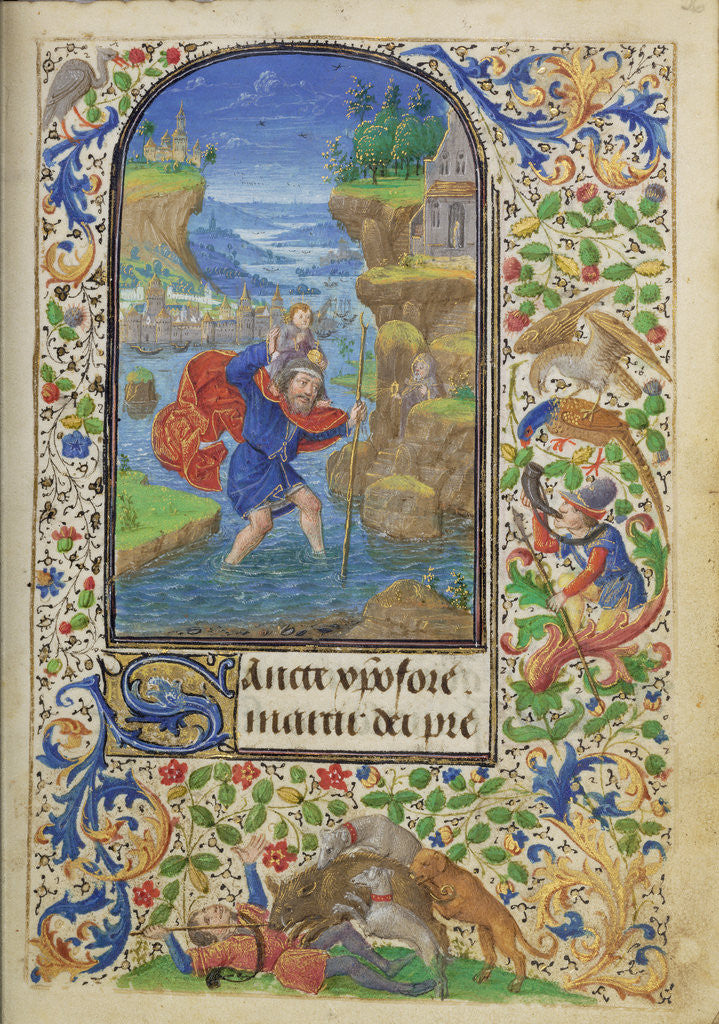 Sancte xpofore.
martir dei pre
26